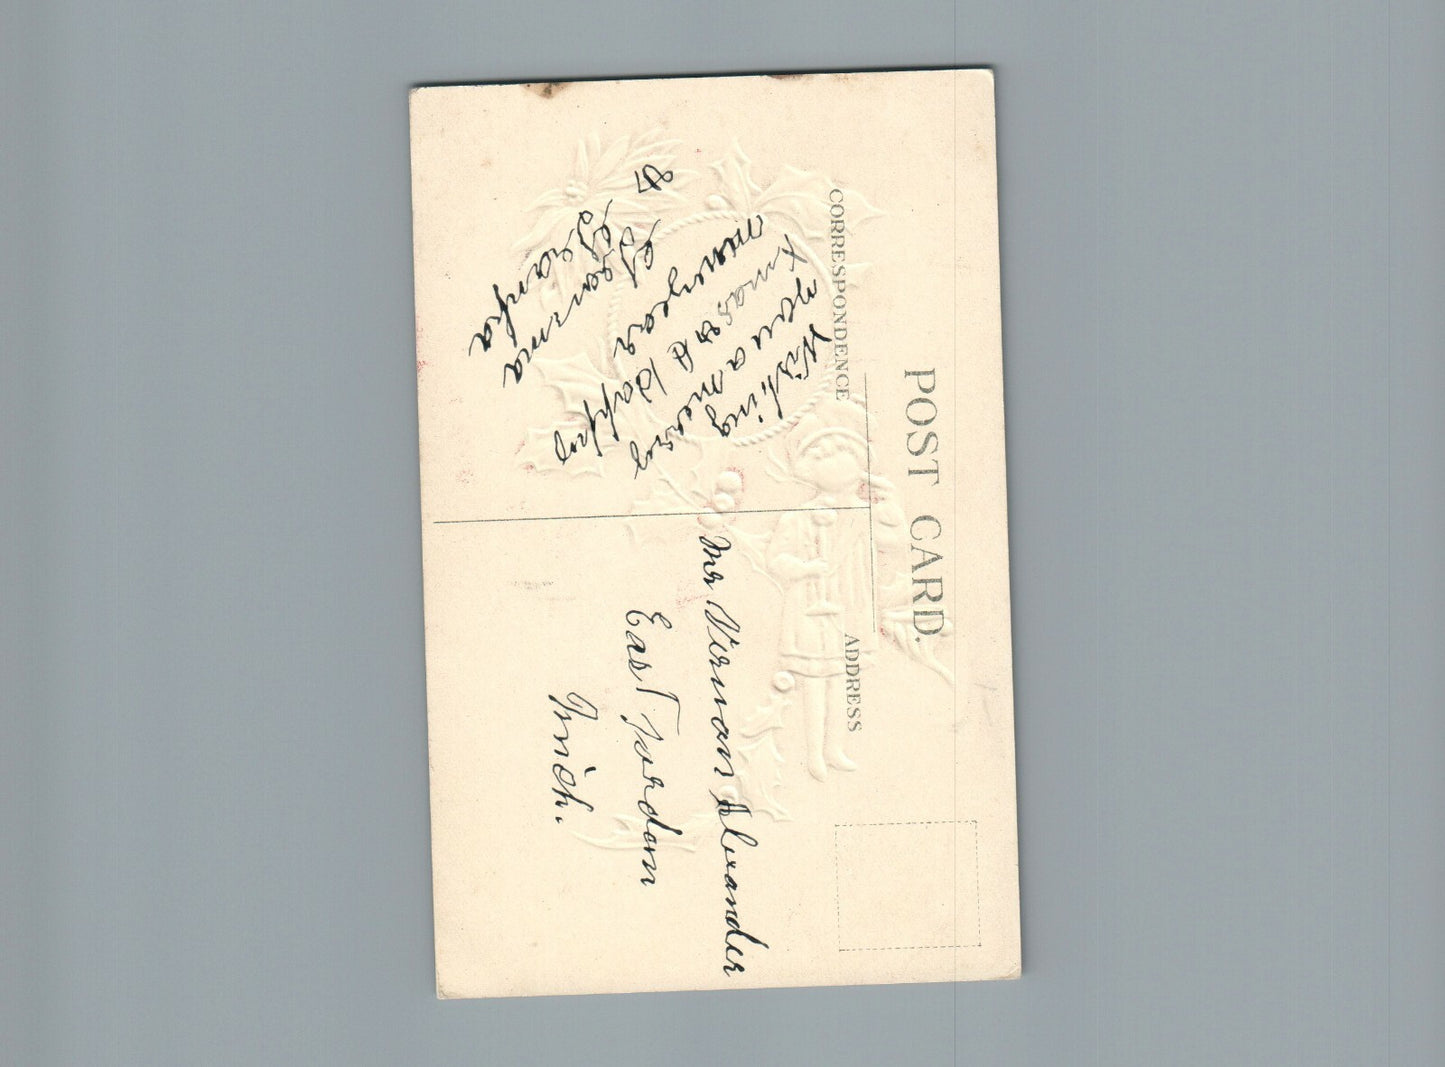 POST CARD.
CORRESPONDENCE
ADDRESS
Wishing
you a merry
xmas & a Happy
new year
Mr Vernan Alexander
East Jordan
Mich.